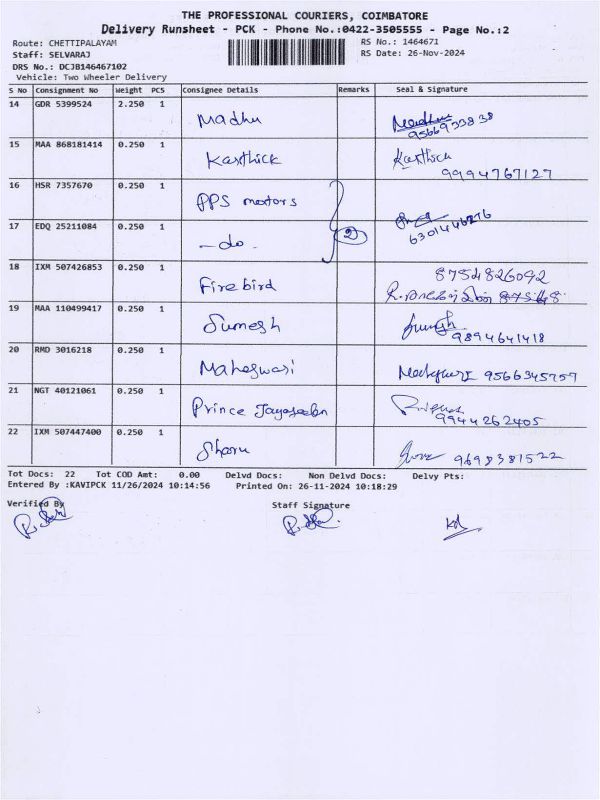 THE PROFESSIONAL COURIERS, COIMBATORE
Delivery Runsheet - PCK - Phone No.:0422-3505555 - Page No.:2
Route: CHETTIPALAYAM RS No.: 1464671
Staff: SELVARAJ RS Date: 26-Nov-2024
DRS No.: DCJB146467102
Vehicle: Two Wheeler Delivery
S No Consignment No Weight PCS Consignee Details Remarks Seal & Signature
14 GDR 5399524 2.250 1 Madhu
15 MAA 868181414 0.250 1 Karthick Karthick
9994767127
16 HSR 7357670 0.250 1 PPS motors
17 EDQ 25211084 0.250 1 -do- 2 6301446276
18 IXM 507426853 0.250 1 Firebird 8754826092
19 MAA 110499417 0.250 1 Sumesh
9894641418
20 RMD 3016218 0.250 1 Maheswari 9566345757
21 NGT 40121061 0.250 1 Prince
9944262405
22 IXM 507447400 0.250 1 9698381522
Tot Docs: 22 Tot COD Amt: 0.00 Delvd Docs: Non Delvd Docs: Delvy Pts:
Entered By :KAVIPCK 11/26/2024 10:14:56 Printed On: 26-11-2024 10:18:29
Verified By Staff Signature